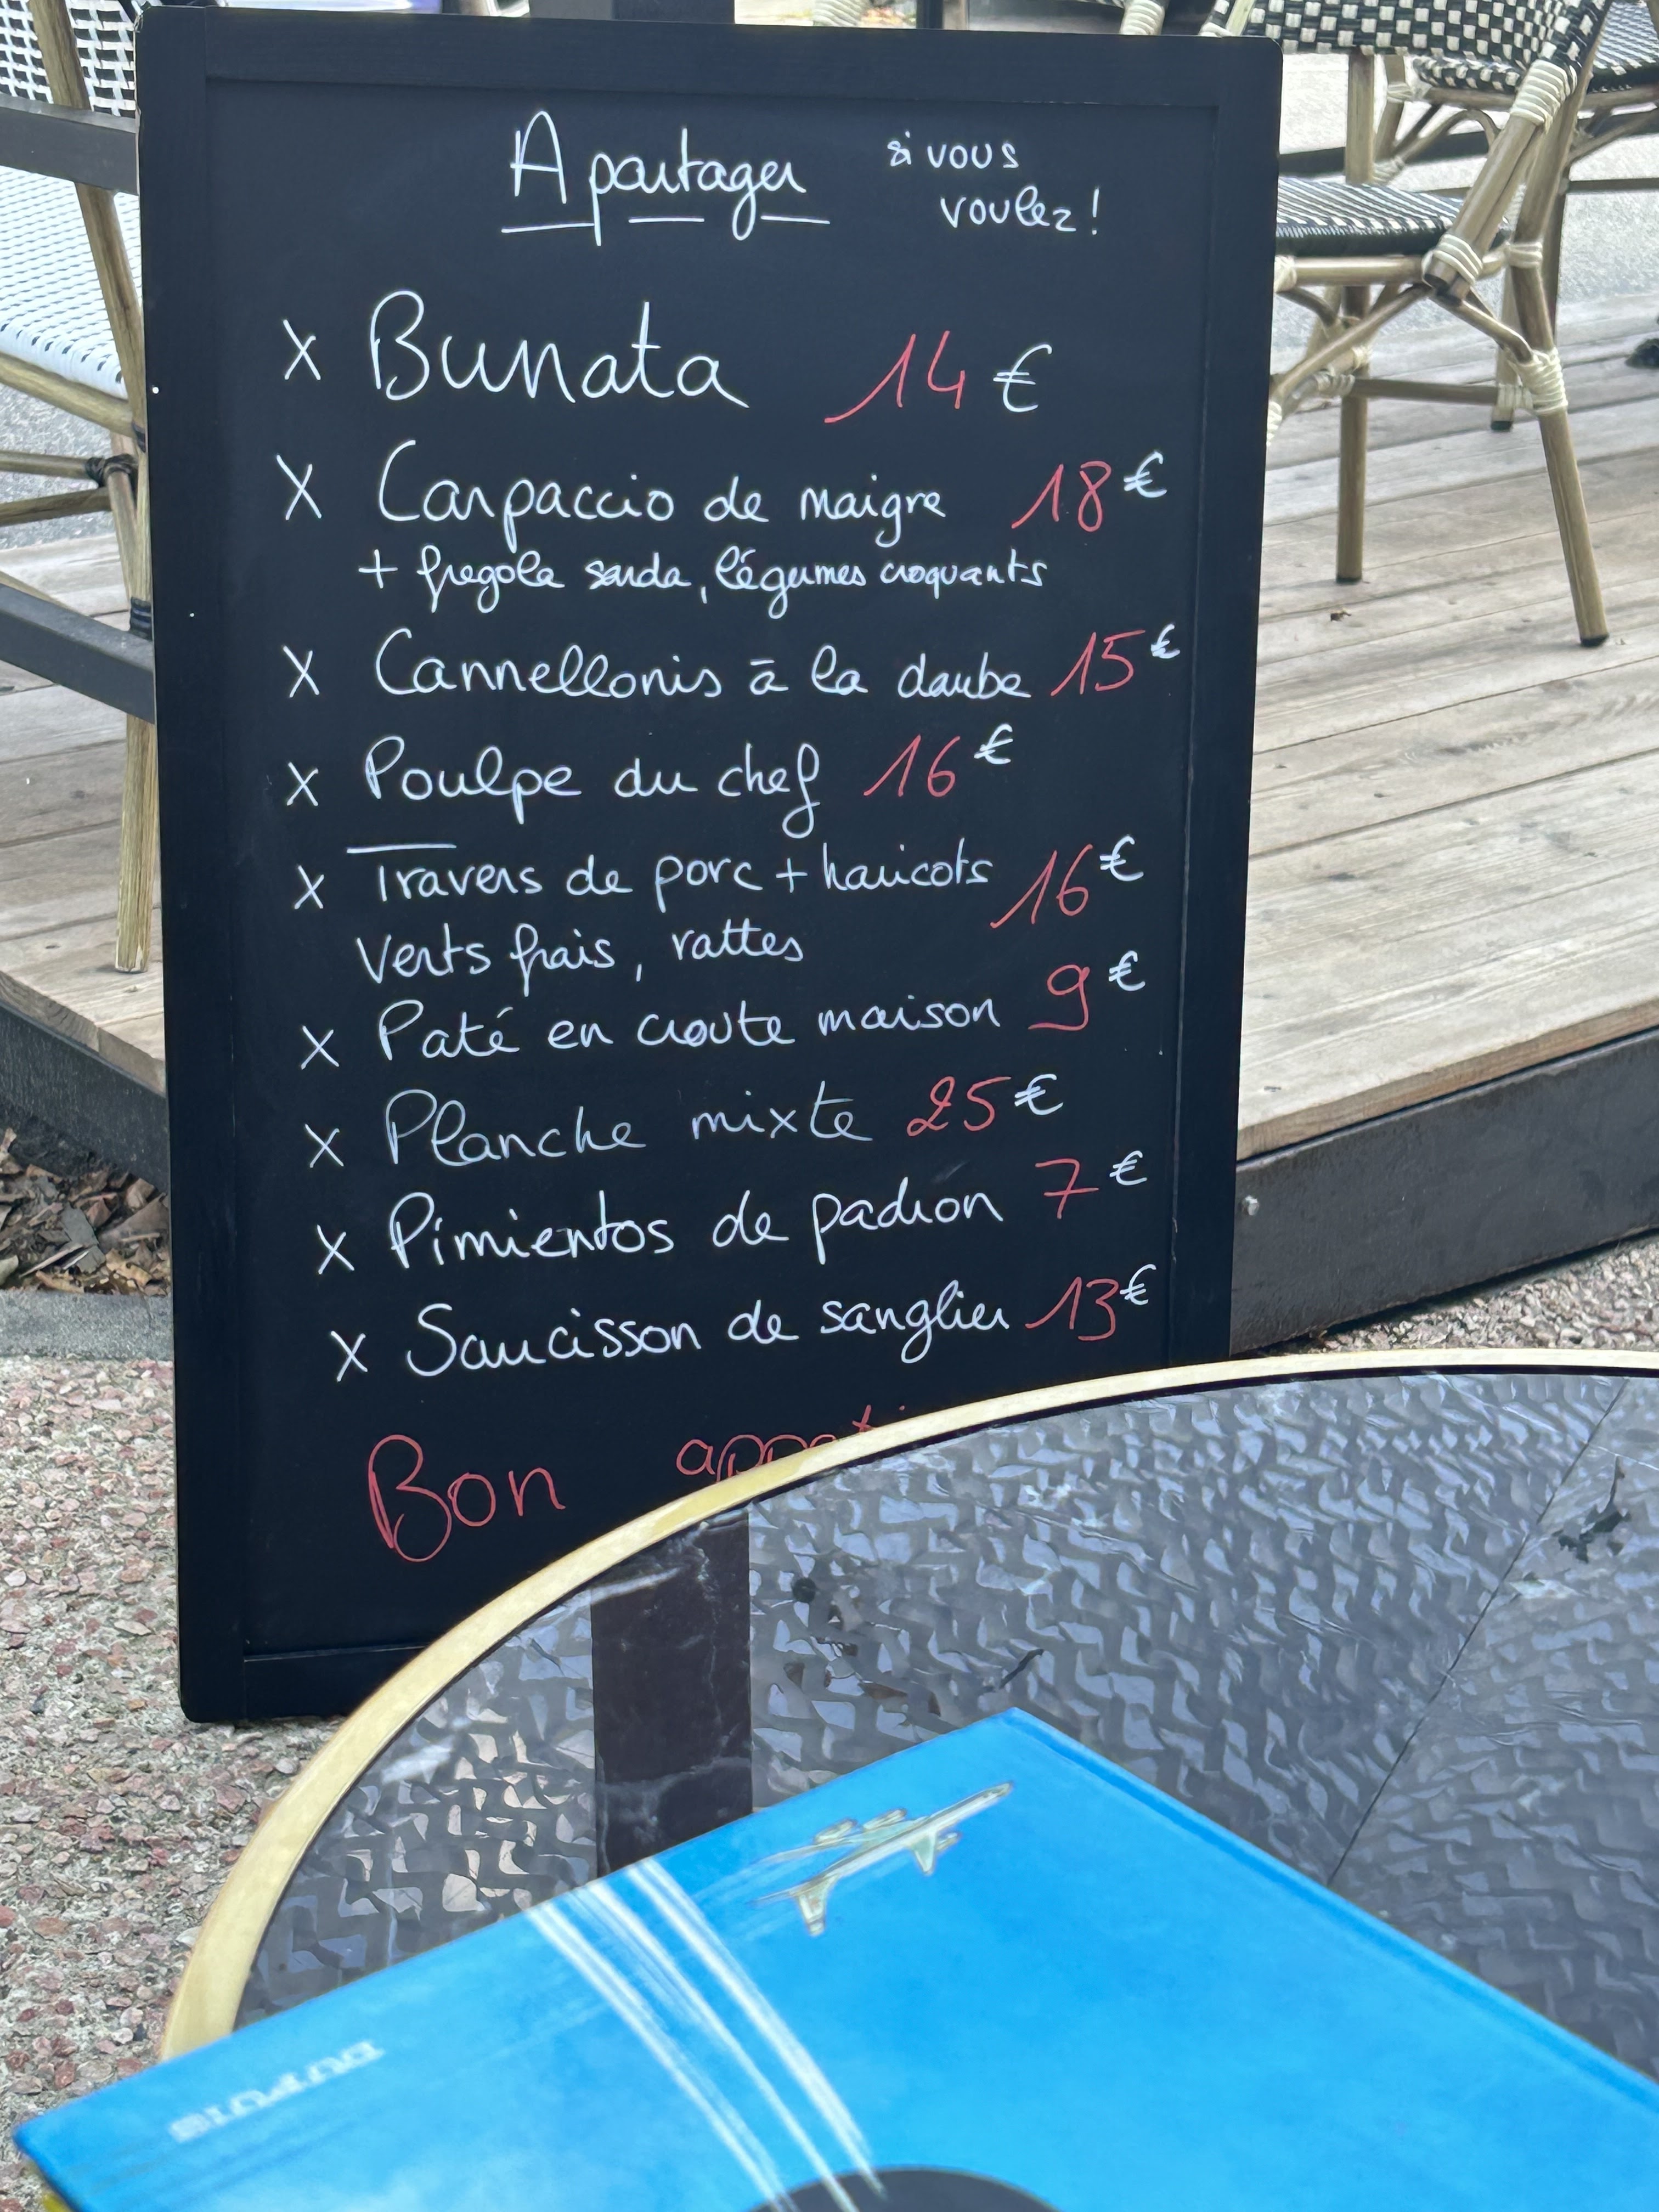 A partager si vous
voulez!
x Burrata 14€
x Carpaccio de maigre 18€
+ fregola sarda, légumes croquants
x Cannellonis à la daube 15€
x Poulpe du chef 16€
x Travers de porc + haricots 16€
verts frais, rattes
x Paté en croute maison 9€
x Planche mixte 25€
x Pimientos de padron 7€
x Saucisson de sanglier 13€
Bon
DUPUIS